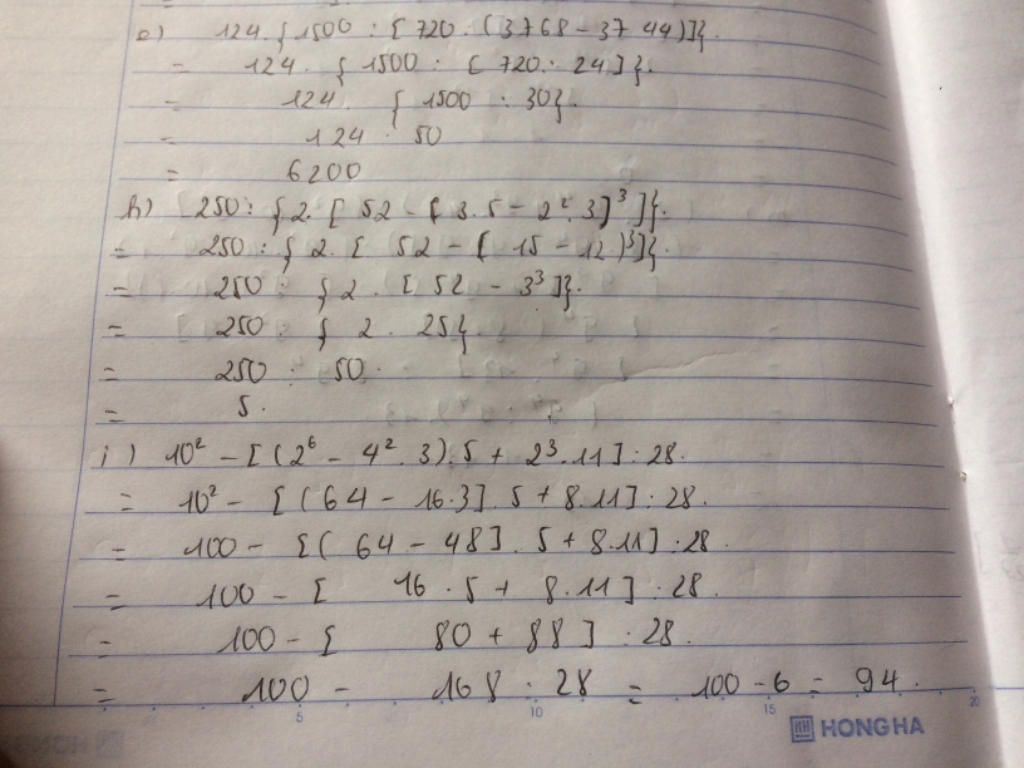 e) 124. {1500 : [720 : (3768 - 3744)]}.
= 124. {1500 : [720 : 24]}.
= 124. {1500 : 30}.
= 124 . 50
= 6200
h) 250 : {2. [52 - [3.5 - 2².3]³]}.
= 250 : {2. [52 - (15 - 12)³]}.
= 250 : {2 . [52 - 3³]}.
= 250 : {2 . 25}.
= 250 : 50.
= 5.
i) 10² - [(2⁶ - 4².3).5 + 2³.11] : 28.
= 10² - [(64 - 16.3]. 5 + 8.11] : 28.
= 100 - [(64 - 48]. 5 + 8.11] : 28.
= 100 - [ 16 . 5 + 8.11] : 28.
= 100 - [ 80 + 88] : 28.
= 100 - 168 : 28 = 100 - 6 = 94.
5 10 15 20
HH HONG HA